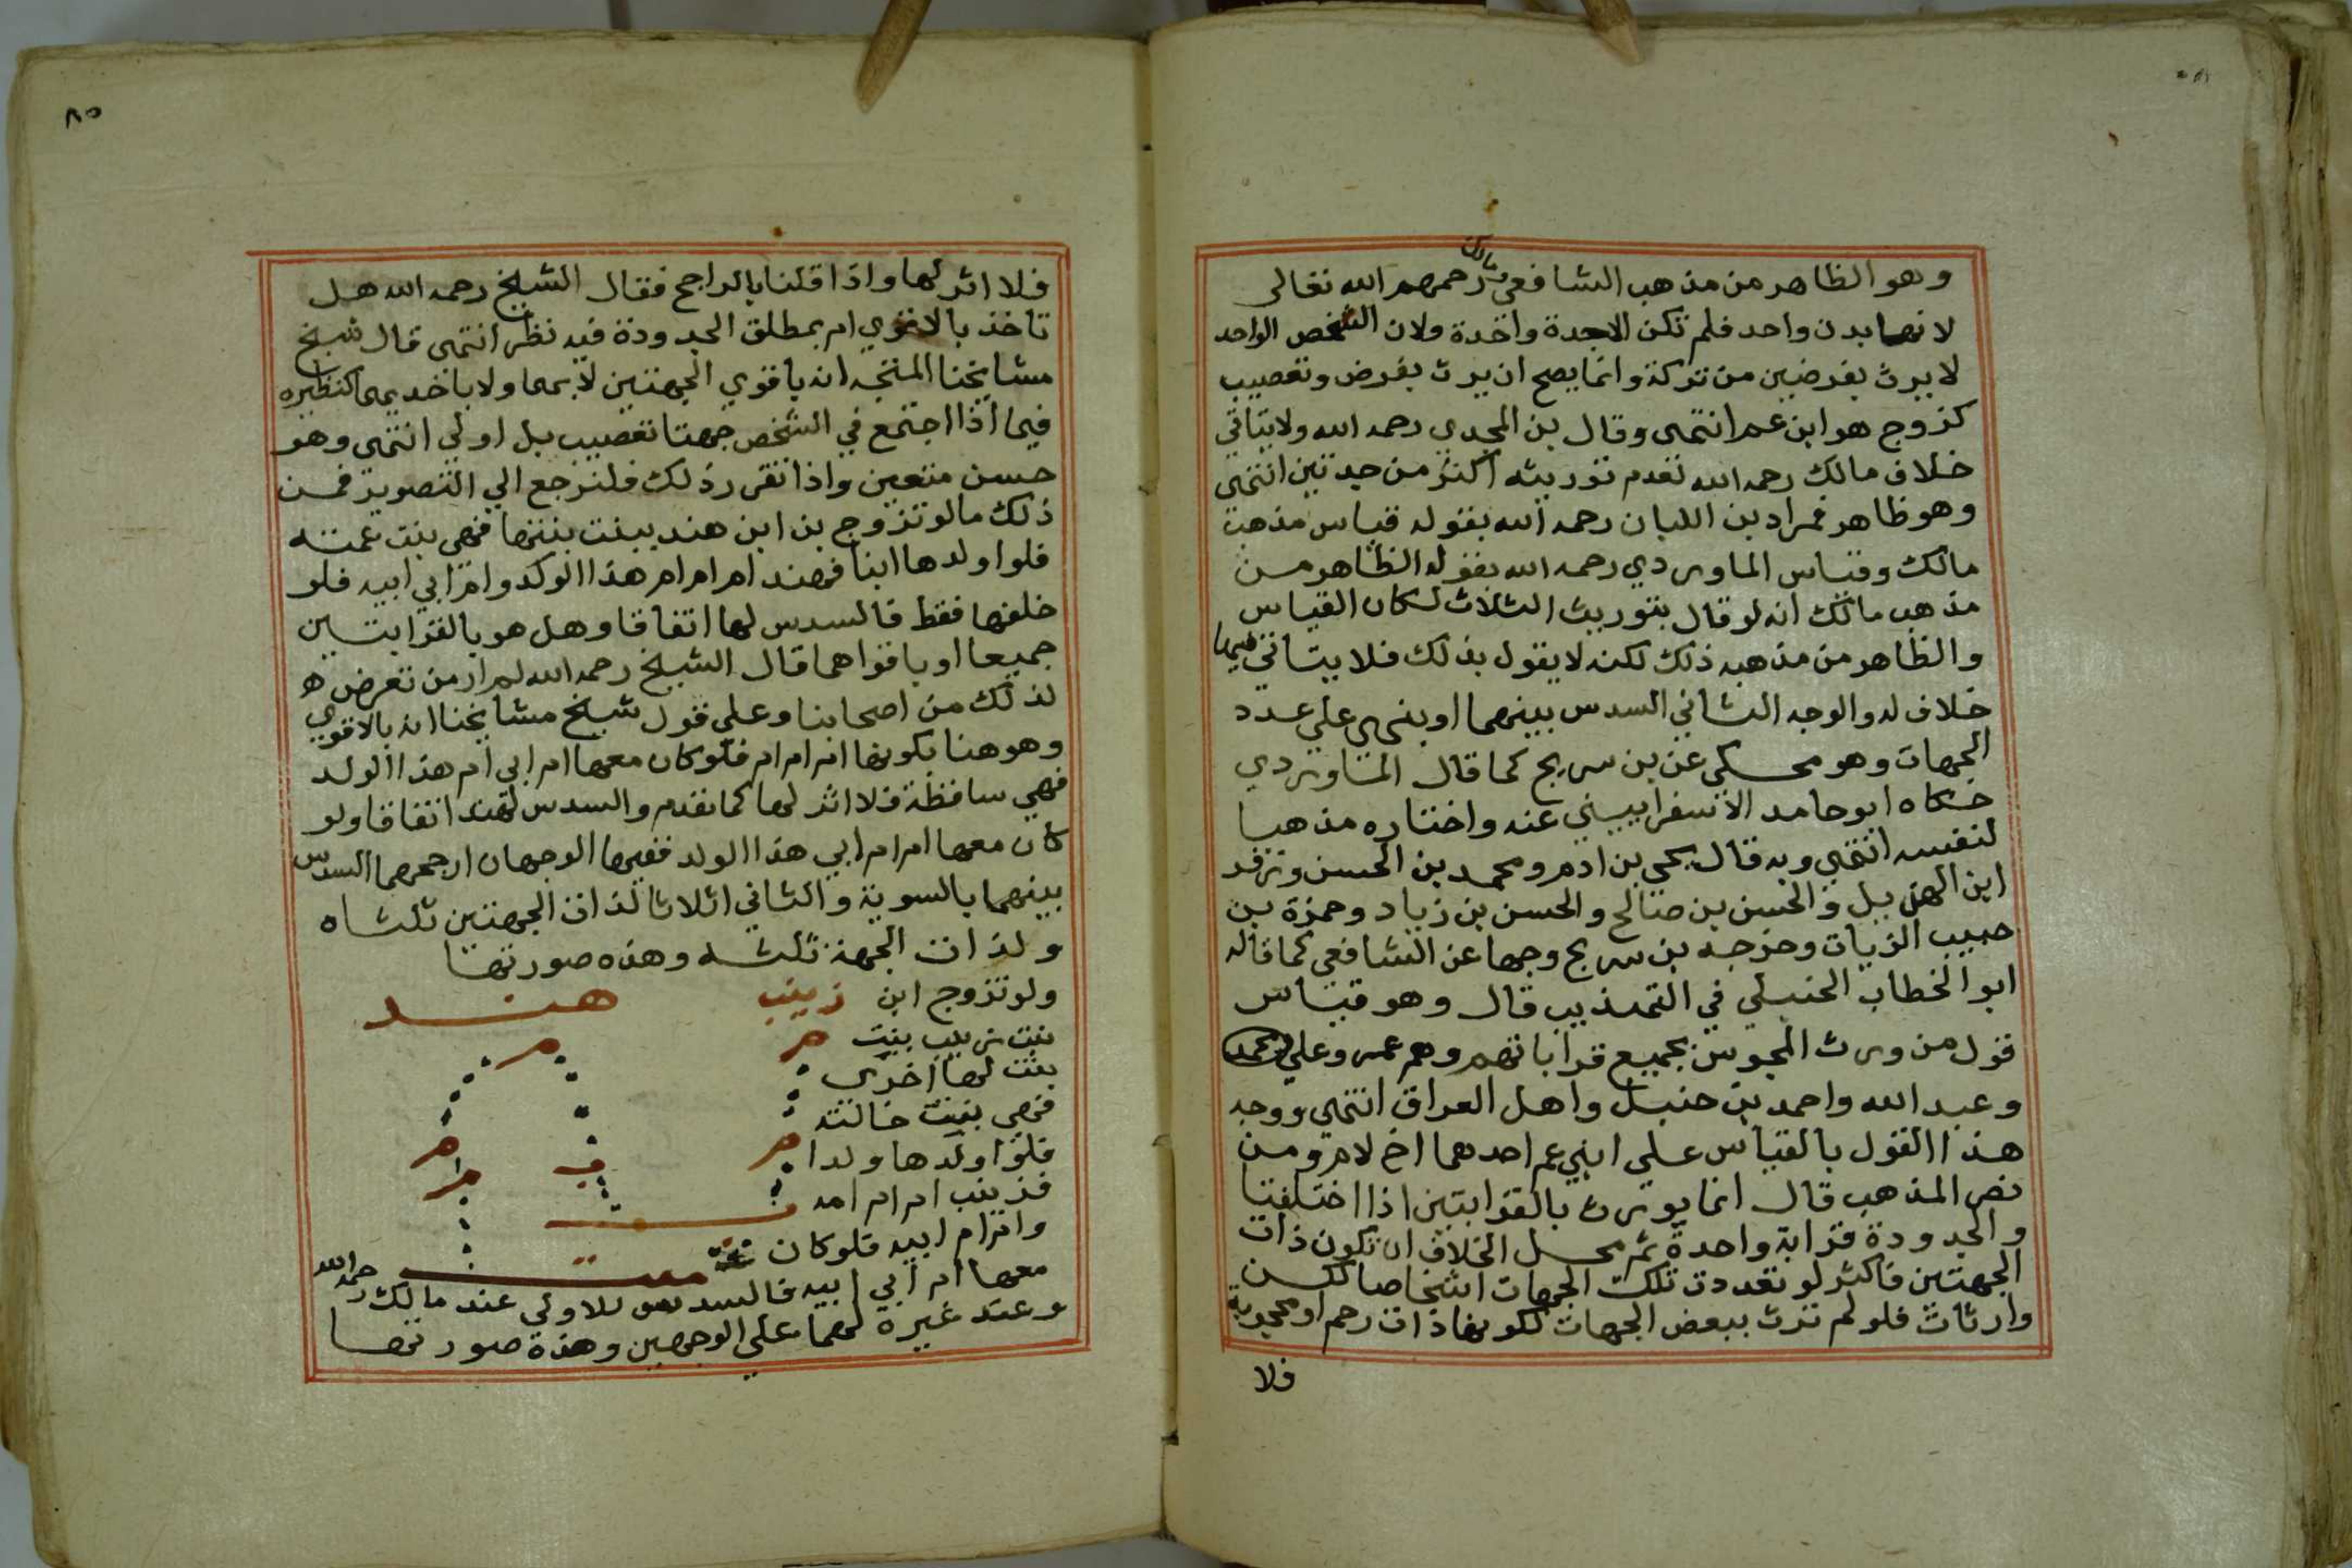 وهو الظاهر من مذهب الشافعي ومالك رحمهم الله تعالى
لانها بدن واحد فلم تكن الاجدة واحدة ولان الشخص الواحد
لا يرث بفرضين من تركة وانما يصح ان يرث بفرض وتعصيب
كزوج هو ابن عم انتهى وقال بن المجدي رحمه الله ولا يتاتي
خلاف مالك رحمه الله لعدم توريثه اكثر من جدتين انتهى
وهو ظاهر فمراد بن اللبان رحمه الله بقوله قياس مذهب
مالك وقياس الماوردي رحمه الله بقوله الظاهر من
مذهب مالك انه لو قال بتوريث الثلاث لكان القياس
والظاهر من مذهبه ذلك لكنه لا يقول بذلك فلا يتاتي فيها
خلاف له والوجه الثاني السدس بينهما او بنهي علي عدد
الجهات وهو محكي عن بن سريج كما قال الماوردي
حكاه ابو حامد الاسفراييني عنه واختاره مذهبا
لنفسه انتهى وبه قال يحيى بن ادم ومحمد بن الحسن وزفر
ابن الهذيل والحسن بن صالح والحسن بن زياد وحمزة بن
حبيب الزيات وخرجه بن سريج وجها عن الشافعي كما قاله
ابو الخطاب الحنبلي في التهذيب قال وهو قياس
قول من ورث المجوس بجميع قراباتهم وهم عمر وعلي
وعبد الله واحمد بن حنبل واهل العراق انتهى ووجه
هذا القول بالقياس علي ابني عم احدهما اخ لام ومن
نص المذهب قال انما يورث بالقرابتين اذا اختلفتا
والجدودة قرابة واحدة ثم محل الخلاف ان تكون ذات
الجهتين فاكثر لو تعددت تلك الجهات اشخاصا لكن
وارثات فلو لم ترث ببعض الجهات لكونها ذات رحم او محجوبة
فلا
٨٥
فلا اثر لها واذا قلنا بالراجح فقال الشيخ رحمه الله هل
تاخذ بالاقوي ام بمطلق الجدودة فيه نظر انتهى قال شيخ
مشايخنا المتجه انه باقوي الجهتين لا بهما ولا باحديهما كنظيره
فيما اذا اجتمع في الشخص جهتا تعصيب بل اولي انتهى وهو
حسن متعين واذا تقرر ذلك فلنرجع الي التصوير فمن
ذلك ما لو تزوج بن ابن هند ببنت بنتها فهي بنت عمته
فلو اولدها ابنا فهند ام ام ام هذا الولد وام ابي ابيه فلو
خلفها فقط فالسدس لها اتفاقا وهل هو بالقرابتين
جميعا او باقواهما قال الشيخ رحمه الله لم ار من تعرض
لذلك من اصحابنا وعلي قول شيخ مشايخنا انه بالاقوي
وهو هنا بكونها ام ام ام فلو كان معها ام ابي ام هذا الولد
فهي ساقطة فلا اثر لها كما تقدم والسدس لهند اتفاقا ولو
كان معها ام ام ابي هذا الولد ففيها الوجهان ارجحهما السدس
بينهما بالسوية والثاني اثلاثا لذات الجهتين ثلثاه
ولذات الجهة ثلثه وهذه صورتها
ولو تزوج ابن زينب هند
بنت زينب بنت
بنت لها اخري
فهي بنت خالته
فلو اولدها ولدا
فزينب ام ام امه
وام ام ابيه فلو كان
معها ام ابي ابيه فالسدس للاولي عند مالك رحمه الله
وعند غيره لهما علي الوجهين وهذه صورتها